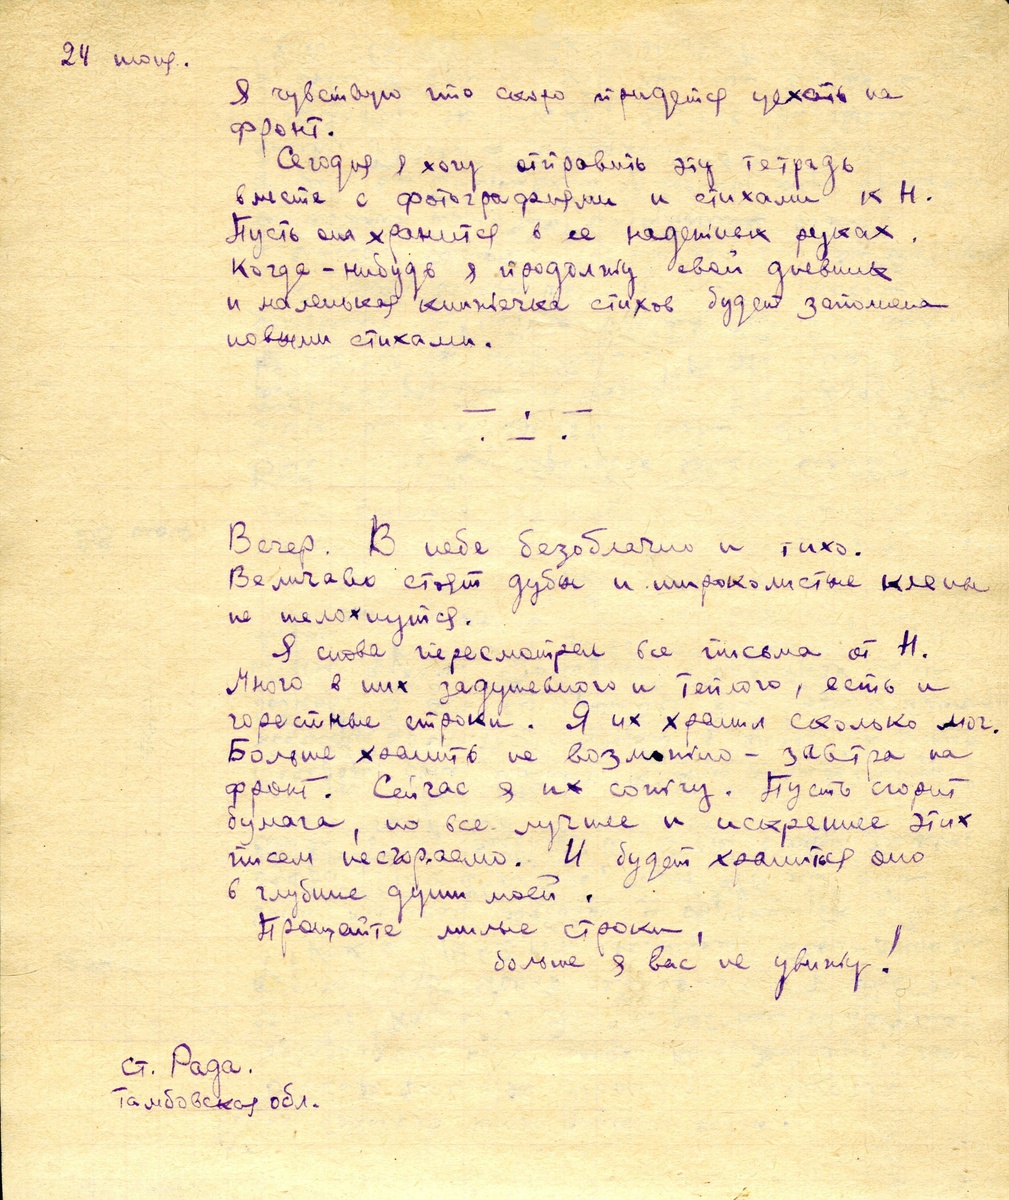 24 июня.
Я чувствую что скоро придется уехать на
фронт.
Сегодня я хочу отправить эту тетрадь
вместе с фотографиями и стихами к Н.
Пусть она хранится в ее надежных руках.
Когда-нибудь я продолжу свой дневник
и маленькая книжечка стихов будет заполнена
новыми стихами.
Вечер. В небе безоблачно и тихо.
Величаво стоят дубы и широколистые клены
не шелохнутся.
Я снова пересмотрел все письма от Н.
Много в них задушевного и теплого, есть и
горестные строки. Я их хранил сколько мог.
Больше хранить не возможно - завтра на
фронт. Сейчас я их сожгу. Пусть сгорит
бумага, но все лучшее и искреннее этих
писем несгораемо. И будет хранится оно
в глубине души моей.
Прощайте милые строки,
больше я вас не увижу!
ст. Рада.
Тамбовская обл.